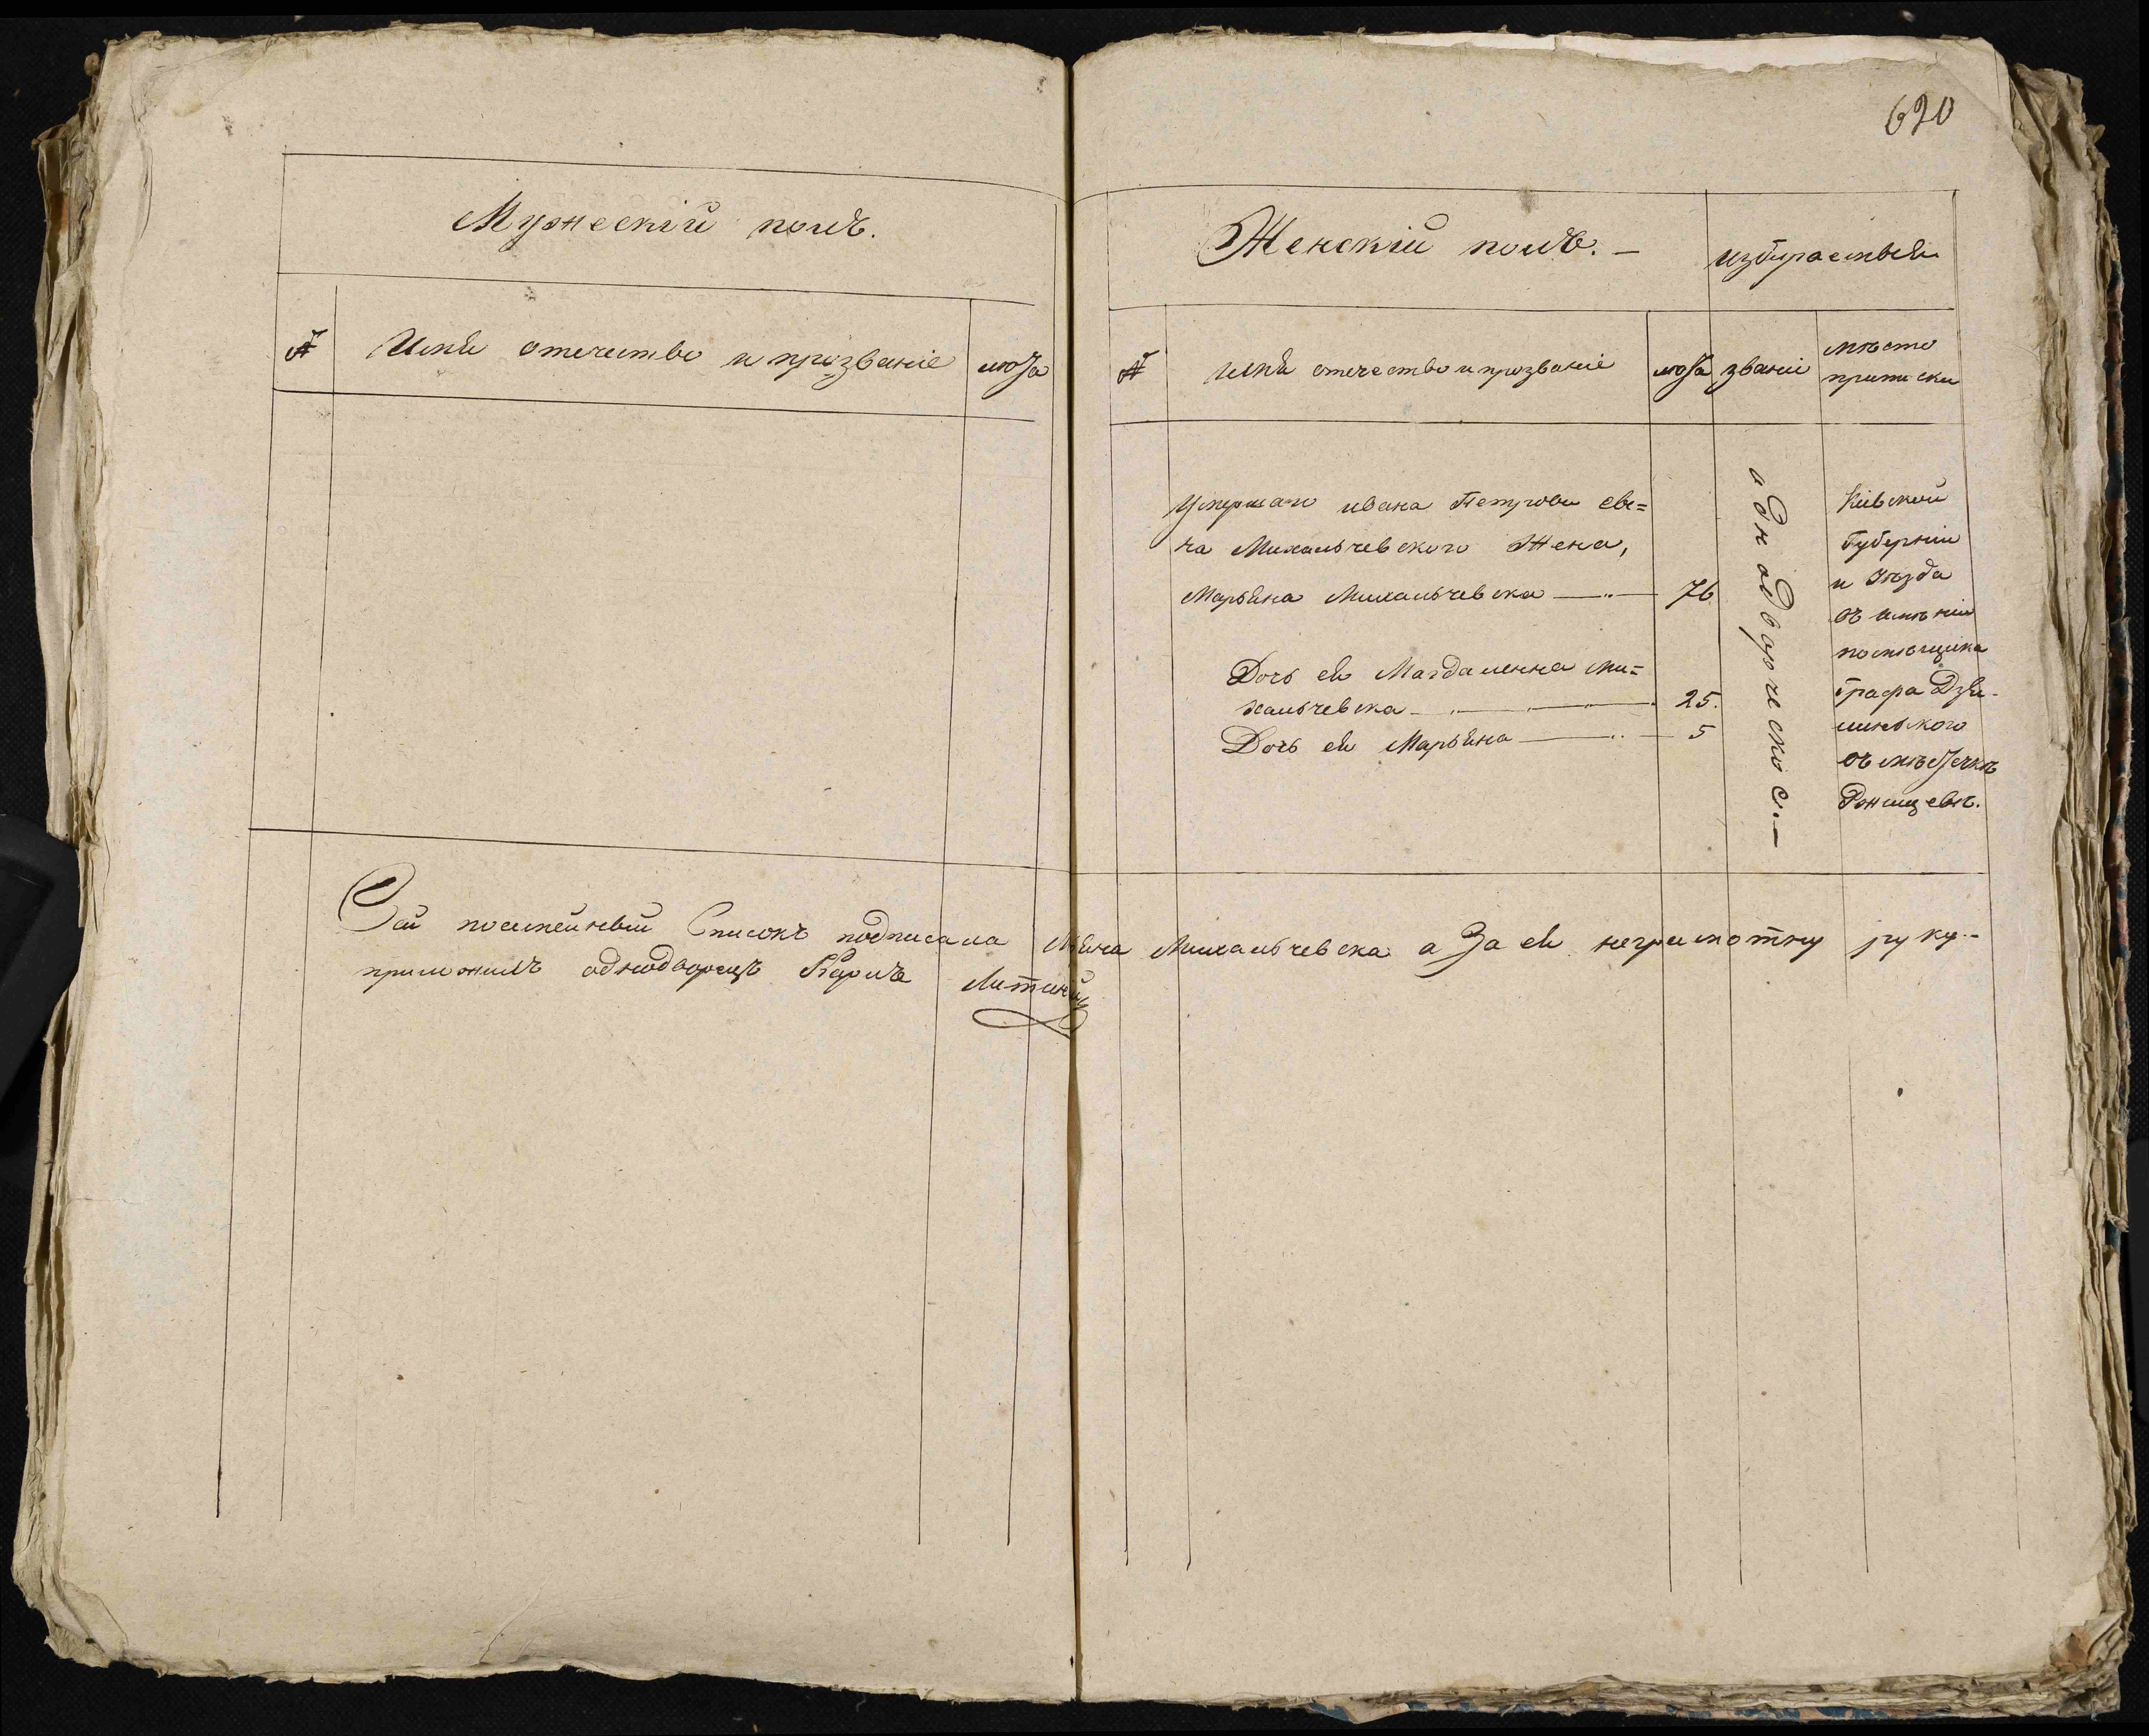 690
Мужескій полъ.
№ Имя отечество и прозваніе лѣта
Женскій полъ. – избираемый
№ имя отечество и прозваніе лѣта званіе мѣсто приписки
Умершаго ивана Петрова сы=
на Михальчевского Жена,
Марьяна Михальчевска 76
Дочь ея Магдаленна Ми=
хальчевска 25.
Дочь ея Марьяна 5
однодворческое.–
Кіевской
Губерніи
и Уѣзда
въ имѣніи
помѣщика
Графа Дзя-
линского
въ мѣстечкѣ
Ржищевѣ.
Сей посемейный Списокъ подписала Михальчевска а За ея неграмотну руку
приложилъ однодворецъ Кароль